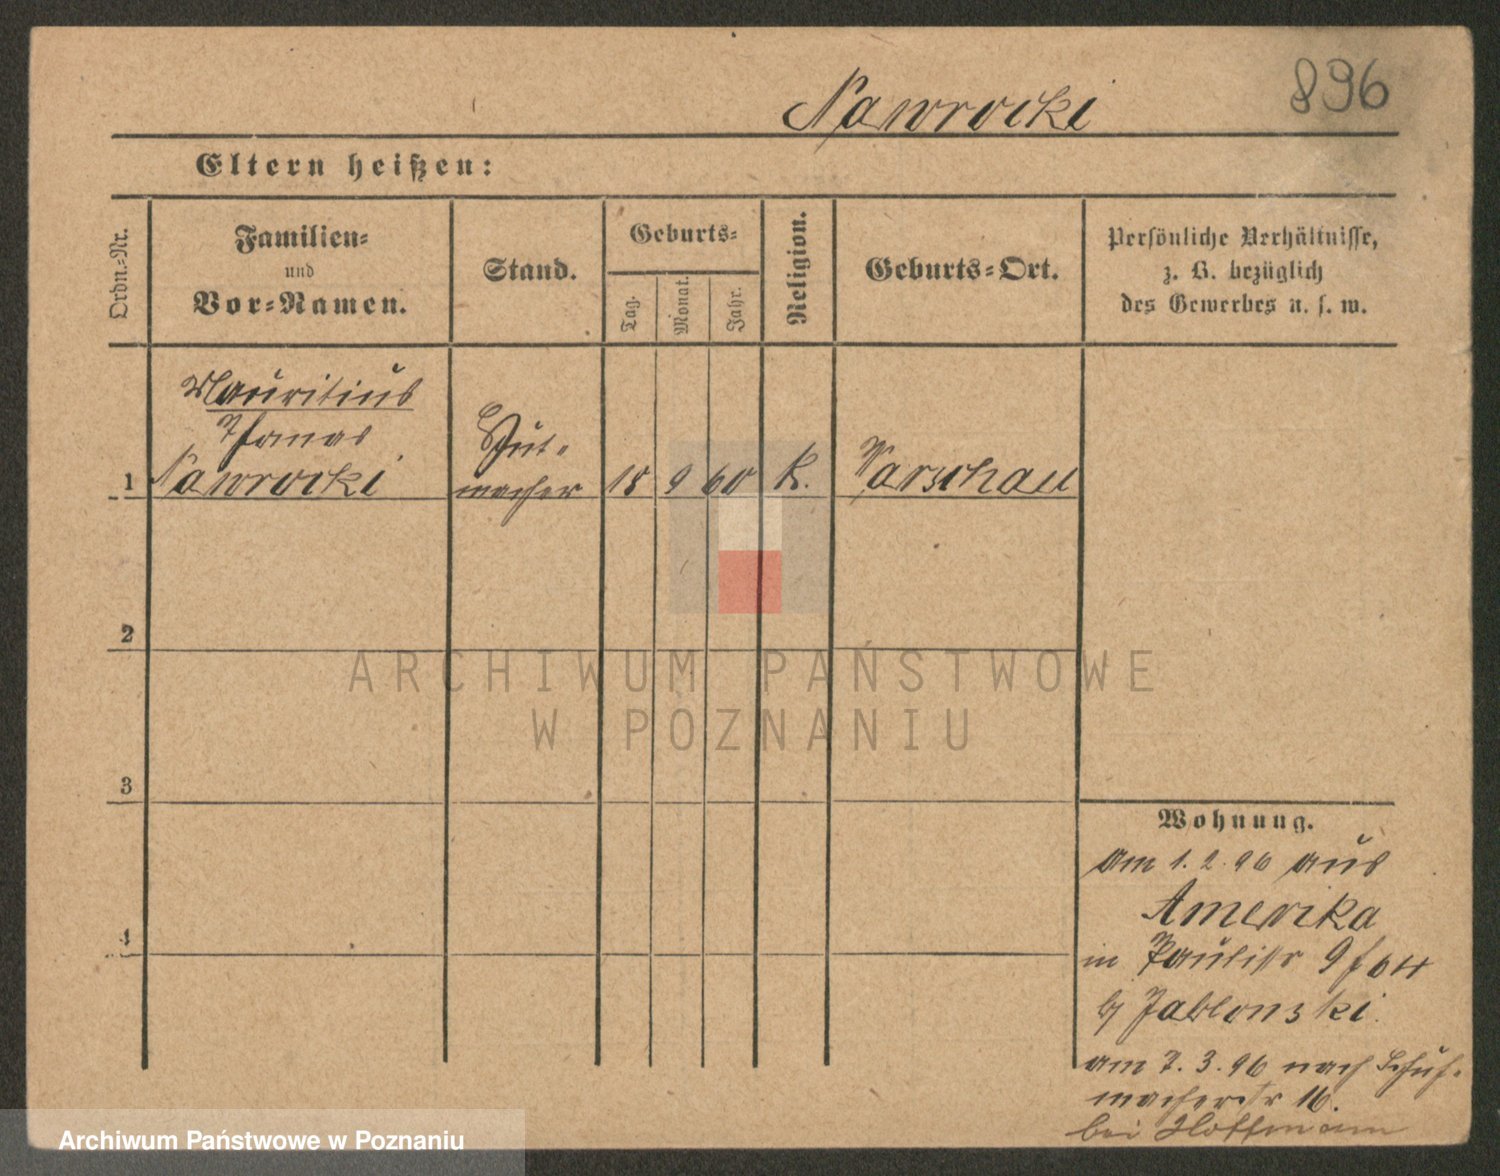 896
Nawrocki
Eltern heißen:
Ordn.-Nr.
Familien-
und
Vor-Namen.
Stand.
Geburts-
Tag.
Monat.
Jahr.
Religion.
Geburts-Ort.
Persönliche Verhältnisse,
z. B. bezüglich
des Gewerbes u. s. w.
Mauritius
Thomas
1 Nawrocki
Hut-
macher
18 9 60 K. Warschau
2
3
4
Wohnung.
am 1. 2. 96 aus
Amerika
in Paulistr 9
b/ Jablonski.
am 7. 3. 96 nach Schuh-
macherstr 16.
bei Hoffmann
ARCHIWUM PAŃSTWOWE
W POZNANIU
Archiwum Państwowe w Poznaniu